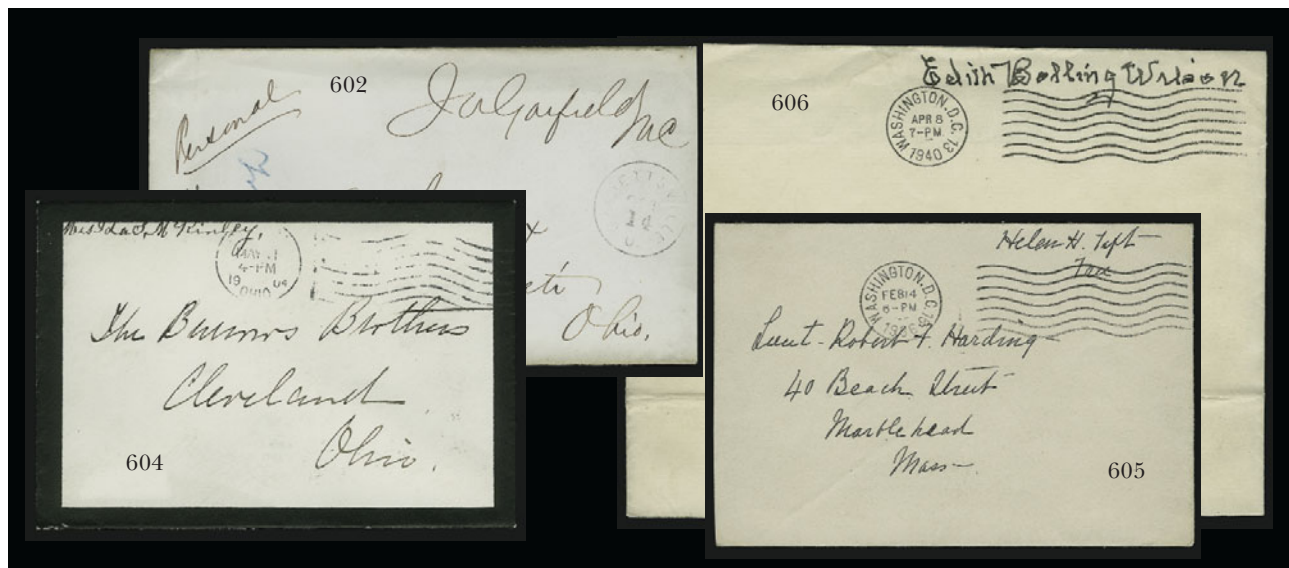 602
Personal
J A Garfield MC
14
Ohio.
606
Edith Bolling Wilson
WASHINGTON, D.C. 13
APR 8
7-PM
1940
Mrs Ida S. McKinley,
4-PM
19 04
OHIO
The Burrows Brothers
Cleveland
Ohio.
604
Helen H. Taft
WASHINGTON, D.C.
FEB 14
6-PM
Lieut. Robert F. Harding
40 Beach Street
Marblehead
Mass-
605